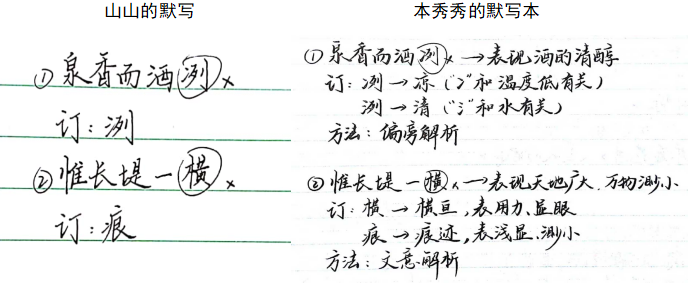 山山的默写
① 泉香而酒冽 ×
订：洌
② 惟长堤一横 ×
订：痕
本秀秀的默写本
① 泉香而酒冽 × → 表现酒的清醇
订：冽 → 冻（“冫”和温度低有关）
洌 → 清（“氵”和水有关）
方法：偏旁解析
② 惟长堤一横 × → 表现天地广大、万物渺小
订：横 → 横亘，表用力、显眼
痕 → 痕迹，表浅显、渺小
方法：文意解析